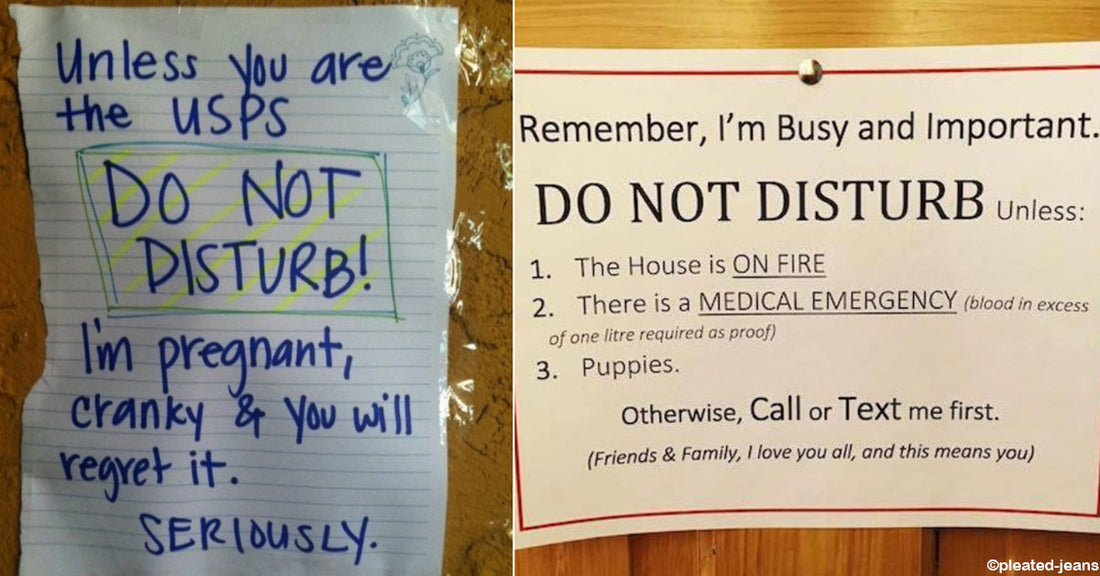 Unless you are
the USPS
DO NOT
DISTURB!
I'm pregnant,
cranky & you will
regret it.
SERIOUSLY.
Remember, I'm Busy and Important.
DO NOT DISTURB Unless:
1. The House is ON FIRE
2. There is a MEDICAL EMERGENCY (blood in excess
of one litre required as proof)
3. Puppies.
Otherwise, Call or Text me first.
(Friends & Family, I love you all, and this means you)
©pleated-jeans